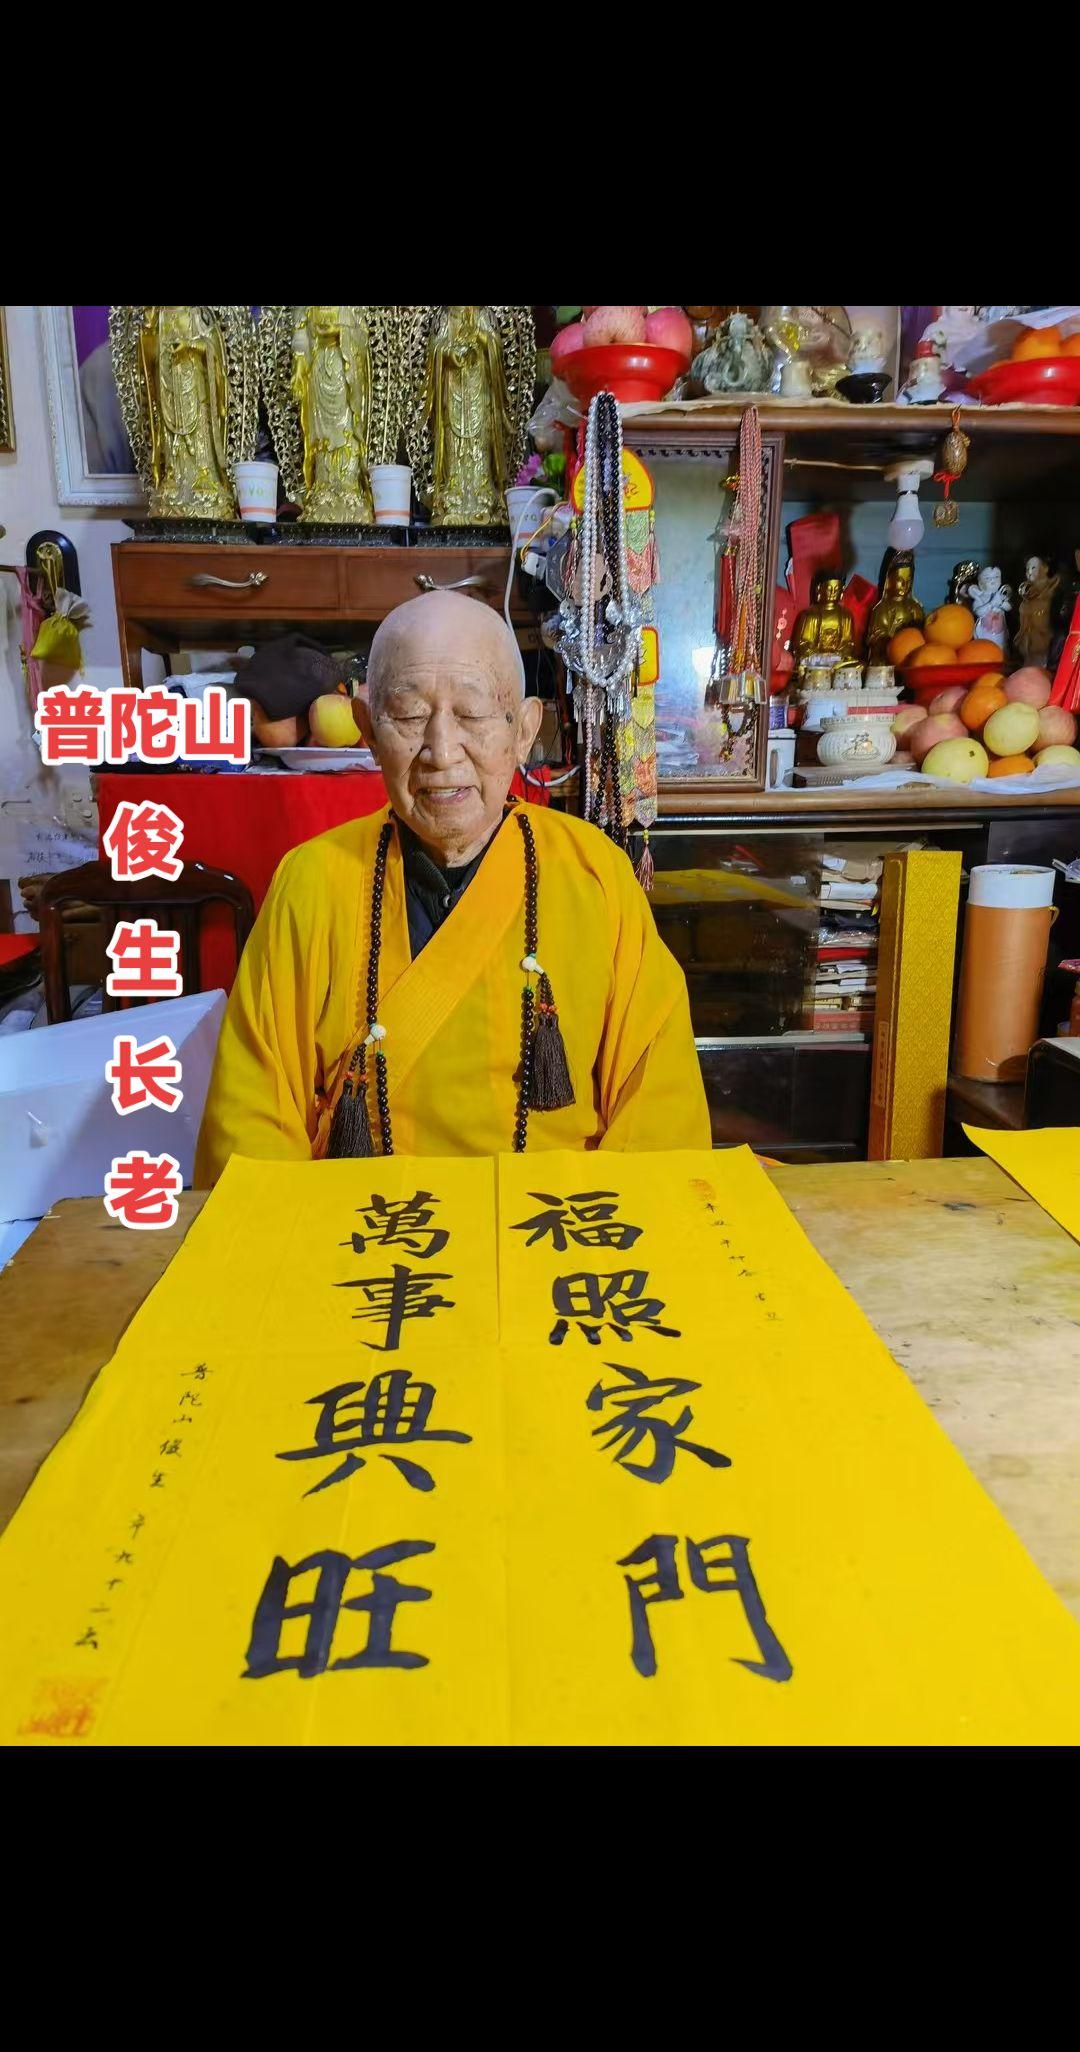 普陀山
俊
生
长
老
福照家門
萬事興旺
普陀山俊生 年九十二去